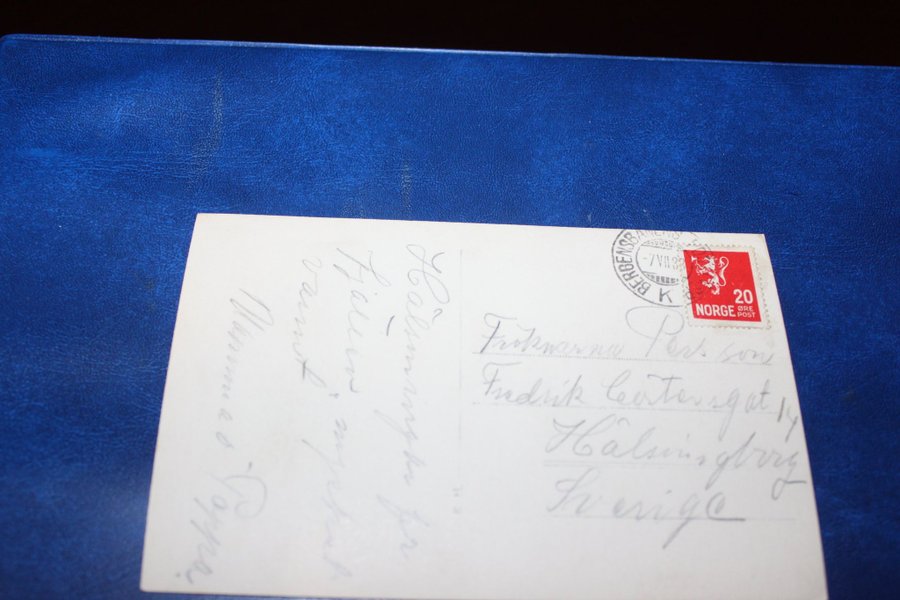 Hälsningar från
Fjällen mycket
varmt
Mamma o Pappa
BERGENSBANENS
-7 VII 38
K
20
NORGE ØRE
POST
Fröknarna Persson
Fredrik Gat 14
Hälsingborg
Sverige